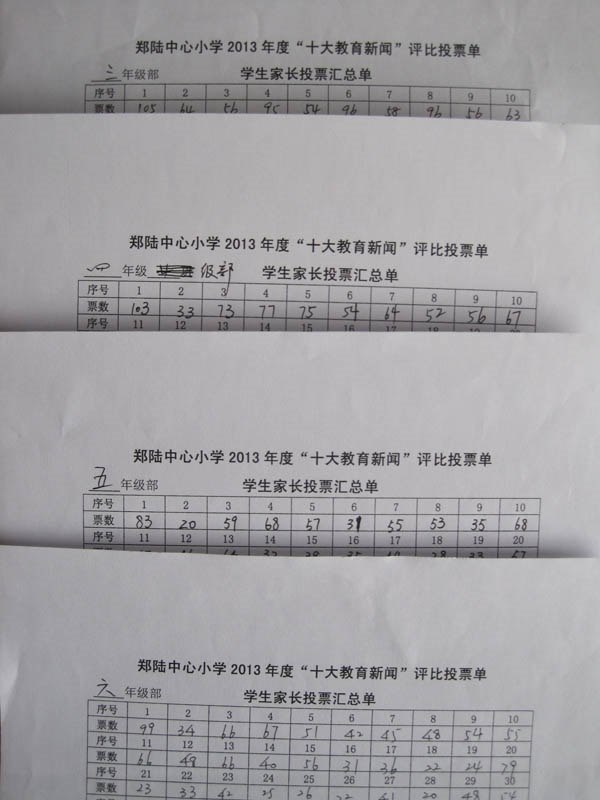 郑陆中心小学2013年度“十大教育新闻”评比投票单
三 年级部 学生家长投票汇总单
序号 1 2 3 4 5 6 7 8 9 10
票数 105 64 56 95 54 96 58 96 56 63
郑陆中心小学2013年度“十大教育新闻”评比投票单
四 年级 级部 学生家长投票汇总单
序号 1 2 3 4 5 6 7 8 9 10
票数 103 33 73 77 75 54 64 52 56 67
序号 11 12 13 14 15 16 17 18 19 20
郑陆中心小学2013年度“十大教育新闻”评比投票单
五 年级部 学生家长投票汇总单
序号 1 2 3 4 5 6 7 8 9 10
票数 83 20 59 68 57 31 55 53 35 68
序号 11 12 13 14 15 16 17 18 19 20
郑陆中心小学2013年度“十大教育新闻”评比投票单
六 年级部 学生家长投票汇总单
序号 1 2 3 4 5 6 7 8 9 10
票数 99 34 66 67 51 42 45 48 54 55
序号 11 12 13 14 15 16 17 18 19 20
票数 66 48 66 40 56 31 36 22 24 79
序号 21 22 23 24 25 26 27 28 29 30
票数 23 33 42 25 26 22 41 20 48 54